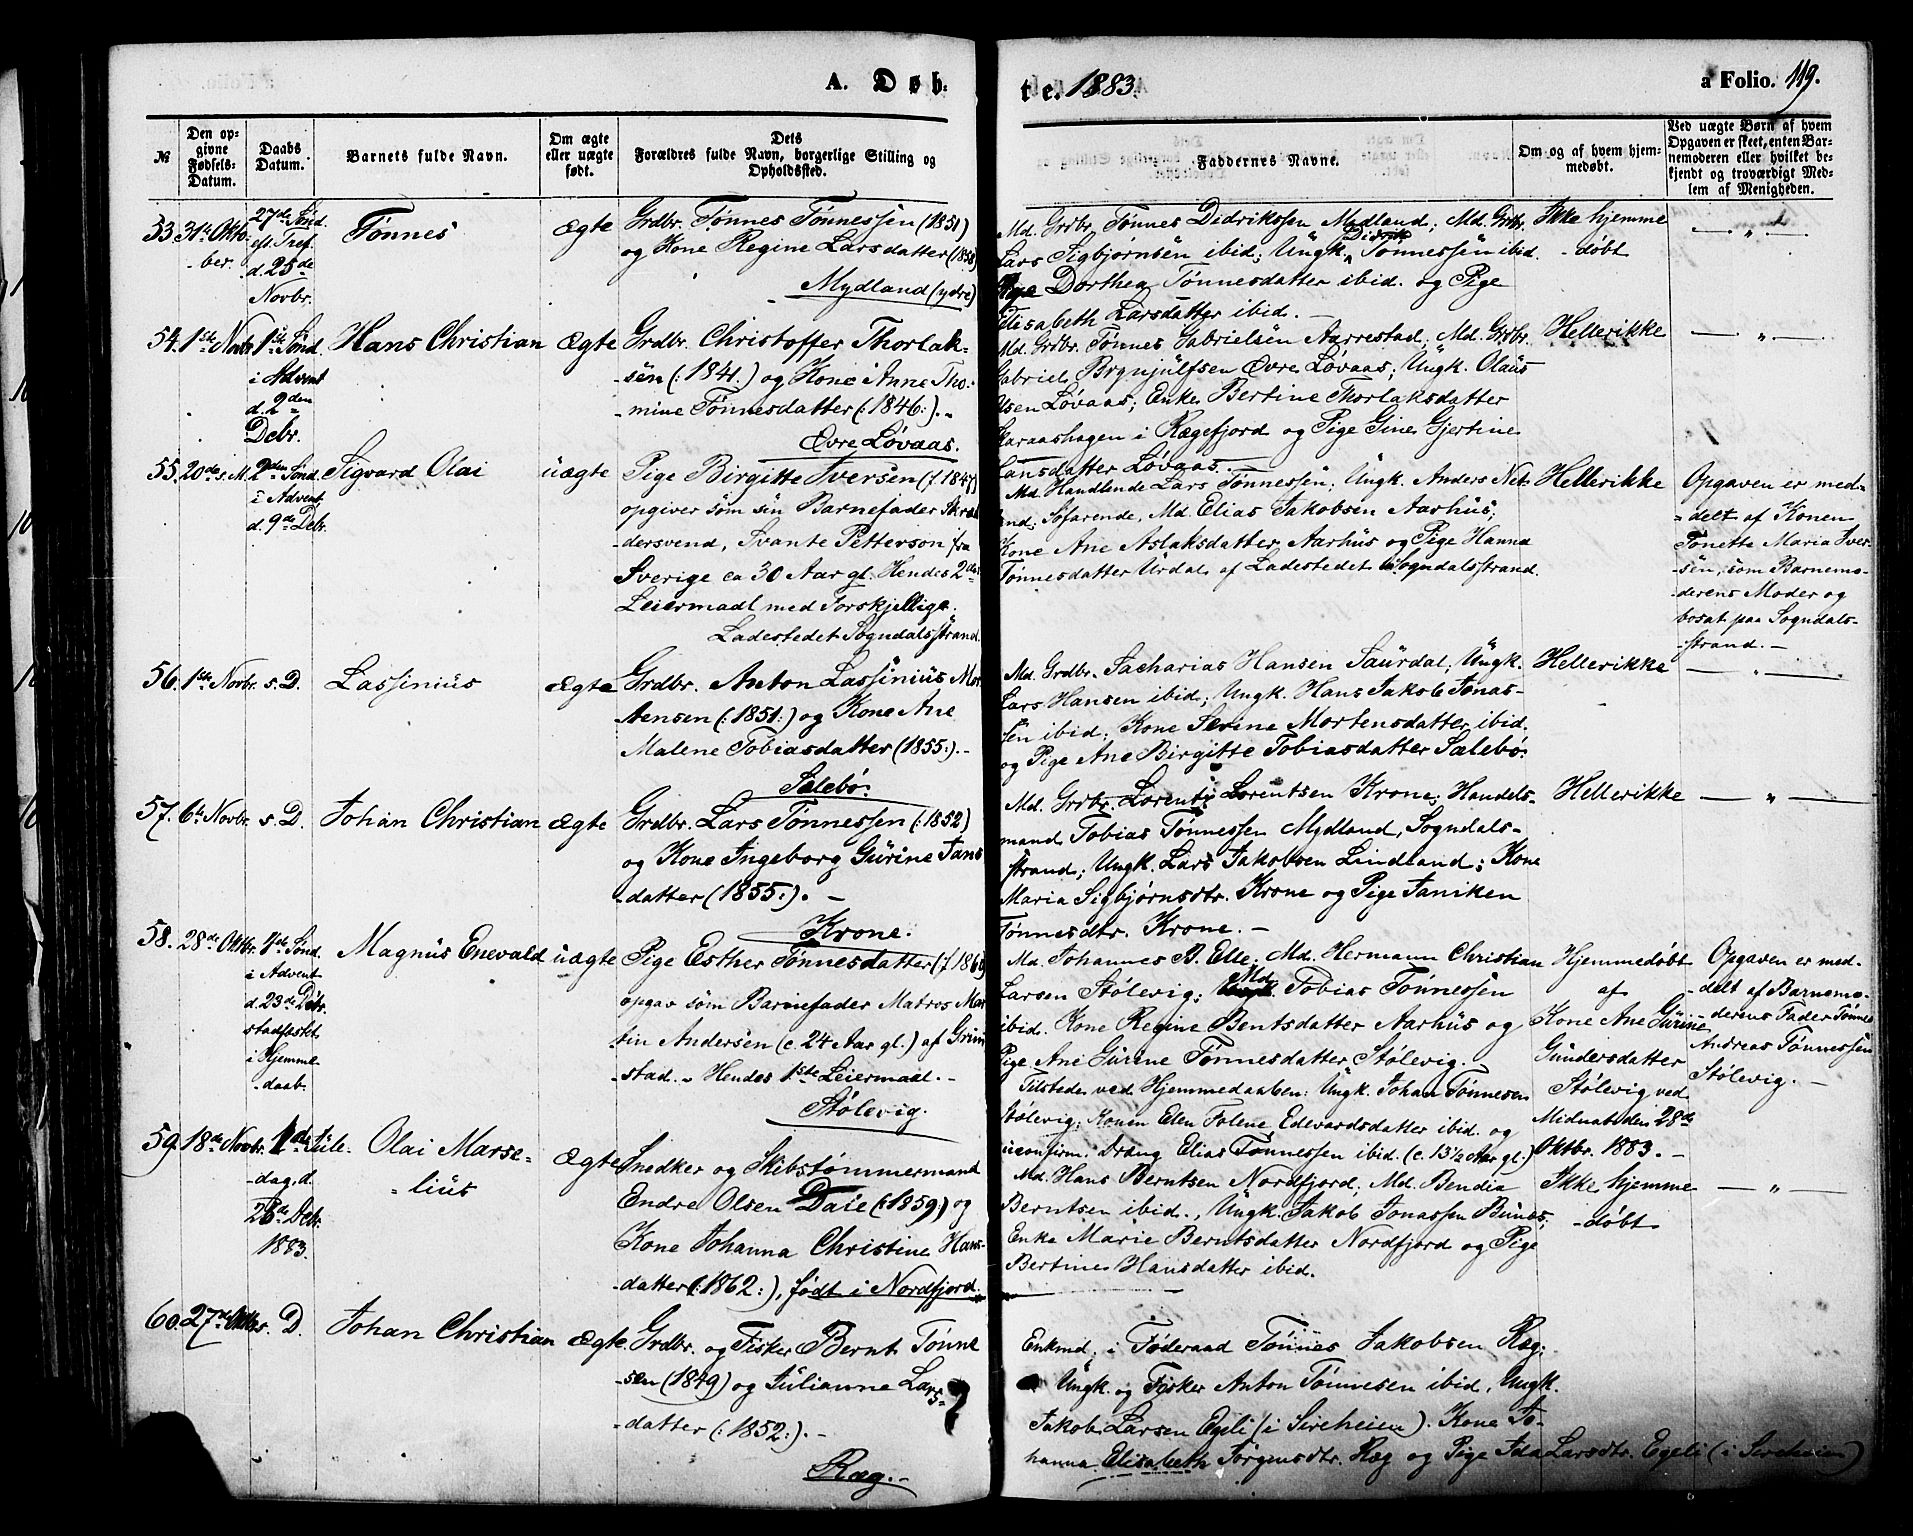 A. Døb-
te. 1883.
a Folio. 119.
№
Den op-
givne
Fødsels-
Datum.
Daabs
Datum.
Barnets fulde Navn.
Om ægte
eller uægte
født.
Dets
Forældres fulde Navn, borgerlige Stilling og
Opholdssted.
Faddernes Navne.
Om og af hvem hjem-
medøbt.
Ved uægte Børn af hvem
Opgaven er skeet, enten Bar-
nemoderen eller hvilket be-
kjendt og troværdigt Med-
lem af Menigheden.
53. 31te Okto-
ber.
27de Sönd.
eft. Tref.
d. 25de
Novbr.
Tønnes
Ægte
Grdbr. Tønnes Tønnessen (1851)
og Kone Regine Larsdatter (1858)
Mydland (ydre)
Md. Grdbr. Tønnes Didriksen Mydland; Md. Grdbr.
Lars Sigbjørnsen ibid; Ungk. Didrik Tønnessen ibid.
Pige Dorthea Tønnesdatter ibid. og Pige
Elisabeth Larsdatter ibid. —
Ikke hjemme
-døbt
— „ —
54. 1ste Novbr.
1ste Sönd.
i Advent
d. 2den
Debr.
Hans Christian
Ægte
Grdbr. Christoffer Thorlak-
-sen (: 1841.) og Kone Anne Tho-
-mine Tønnesdatter (: 1846:). -
Øvre Løvaas.
Md. Grdbr. Tønnes Gabrielsen Aarrestad; Md. Grdbr.
Gabriel Brynjulfsen Øvre Løvaas; Ungk. Olaus
Olsen Løvaas; Enke Bertine Thorlaksdatter
Haraashagen i Rægefjord og Pige Gine Gjertine
Hansdatter Løvaas.
Hellerikke
— „ —
55. 20de s. M.
2den Sönd.
i Advent
d. 9de Debr.
Sigvard Olai
uægte
Pige Birgitte Iversen (f. 1847)
opgiver som sin Barnefader Skræd-
-dersvend, Svante Petterson fra
Sverige ca 30 Aar gl. Hendes 2det
Leiermaal med Forskjellige.
Ladestedet Sogndalsstrand.
Md. Handlende Lars Tønnessen; Ungk. Anders Net-
land; Søfarende, Md. Elias Jakobsen Aarhus;
Kone Ane Aslaksdatter Aarhus og Pige Hanna
Tønnesdatter Urdal af Ladestedet Sogndalsstrand.
Hellerikke
Opgaven er med-
-delt af Konen
Tonette Maria Iver-
-sen, som Barnemo-
-derens Moder og
bosat paa Sogndals-
-strand. —
56. 1ste Novbr.
s. D.
Lassinius
Ægte
Grdbr. Anton Lassinius Mor-
tensen (: 1851:) og Kone Ane
Malene Tobiasdatter (1855:). —
Sælebø.
Md. Grdbr. Sacharias Hansen Saurdal; Ungk.
Lars Hansen ibid; Ungk. Hans Jakob Jonas-
sen ibid; Kone Serine Mortensdatter ibid.
og Pige Ane Birgitte Tobiasdatter Sælebø.
Hellerikke
— „ —
57. 6te Novbr.
s. D.
Johan Christian
Ægte
Grdbr. Lars Tønnessen (: 1852)
og Kone Ingeborg Gurine Jans
-datter (1855:). —
Krone.
Md. Grdbr. Lorents Lorentsen Krone; Handels-
mand Tobias Tønnessen Mydland, Sogndals-
strand; Ungk. Lars Jakobsen Lindland; Kone
Maria Sigbjørnsdtr. Krone og Pige Janiken
Tønnesdtr. Krone. —
Hellerikke
— „ —
58. 28de Oktbr.
4de Sönd.
i Advent
d. 23de Debr.
stadfæstet
i Hjemme
-daab.
Magnus Enevald
uægte
Pige Esther Tønnesdatter (f. 1860)
opgav som Barnefader Matros Mar-
tin Andersen (c. 24 Aar gl.) af Grim
-stad. - Hendes 1ste Leiermaal. —
Stølevig.
Md. Johannes B. Elle; Md. Hermann Christian
Larsen Stølevig; Md. Tobias Tønnessen
ibid. Kone Regine Bentsdatter Aarhus og
Pige Ane Gurine Tønnesdatter Stølevig.
Tilstede ved Hjemmedaaben: Ungk. Johan Tønnesen
Stølevig; Konen Elen Folene Edevardsdatter ibid. og
uconfirm. Dreng Elias Tønnessen ibid. (c. 13½ Aar gl.)
Hjemmedøbt
af
Kone Ane Gurine
Gundersdatter
Stølevig ved
Midnatstiden 28de
Oktbr. 1883. —
Opgaven er med-
-delt af Barnemo-
-derens Fader Tønnes
Andreas Tønnessen
Stølevig. —
59. 18de Novbr.
1ste Jule-
-dag d.
25de Debr.
1883.
Olai Marse-
-lius
Ægte
Snedker og Skibstømmermand
Endre Olsen Daie (: 1859:) og
Kone Johanna Christine Hans-
datter (: 1862:), født i Nordfjord
Md. Hans Berntsen Nordfjord; Md. Bendix
Berntsen ibid., Ungk. Jakob Jonassen Bunes;
Enke Marie Berntsdatter Nordfjord og Pige
Bertine Hansdatter ibid.
Ikke hjemme
-døbt
— „ —
60. 27de Oktbr.
s. D.
Johan Christian
Ægte.
Grdbr. og Fisker Bernt Tønne
-sen (1849) og Julianne Lars-
-datter (: 1852:). —
Ræg. —
Enkmd. i Føderaad Tønnes Jakobsen Ræg;
Ungk. og Fisker Anton Tønnesen ibid. Ungk.
Jakob Larsen Egeli (i Sireheien). Kone Jo-
hanna Elisabeth Jørgensdtr. Ræg og Pige Ida Larsdtr. Egeli (i Sireheien)